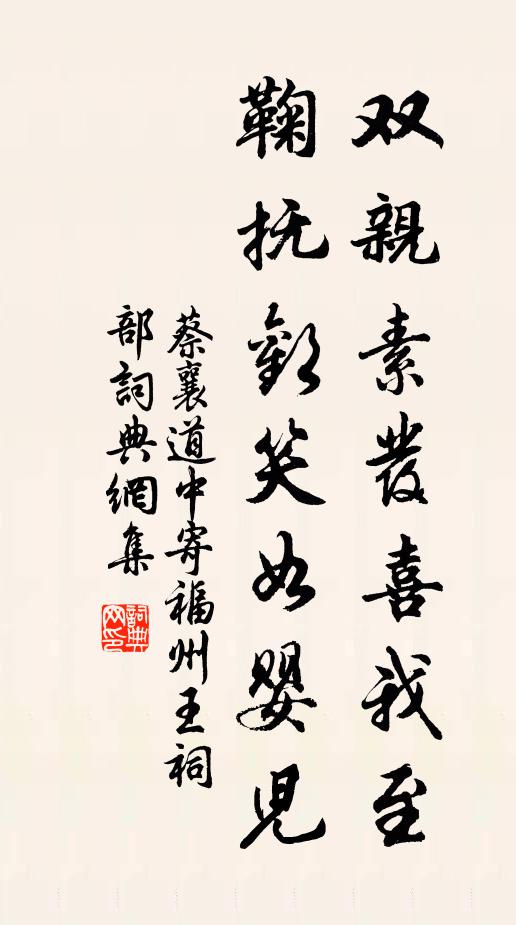 双親素发喜我至
鞠抚歡笑如婴児
蔡襄道中寄福州王祠
部詞典網集
詞典
网印